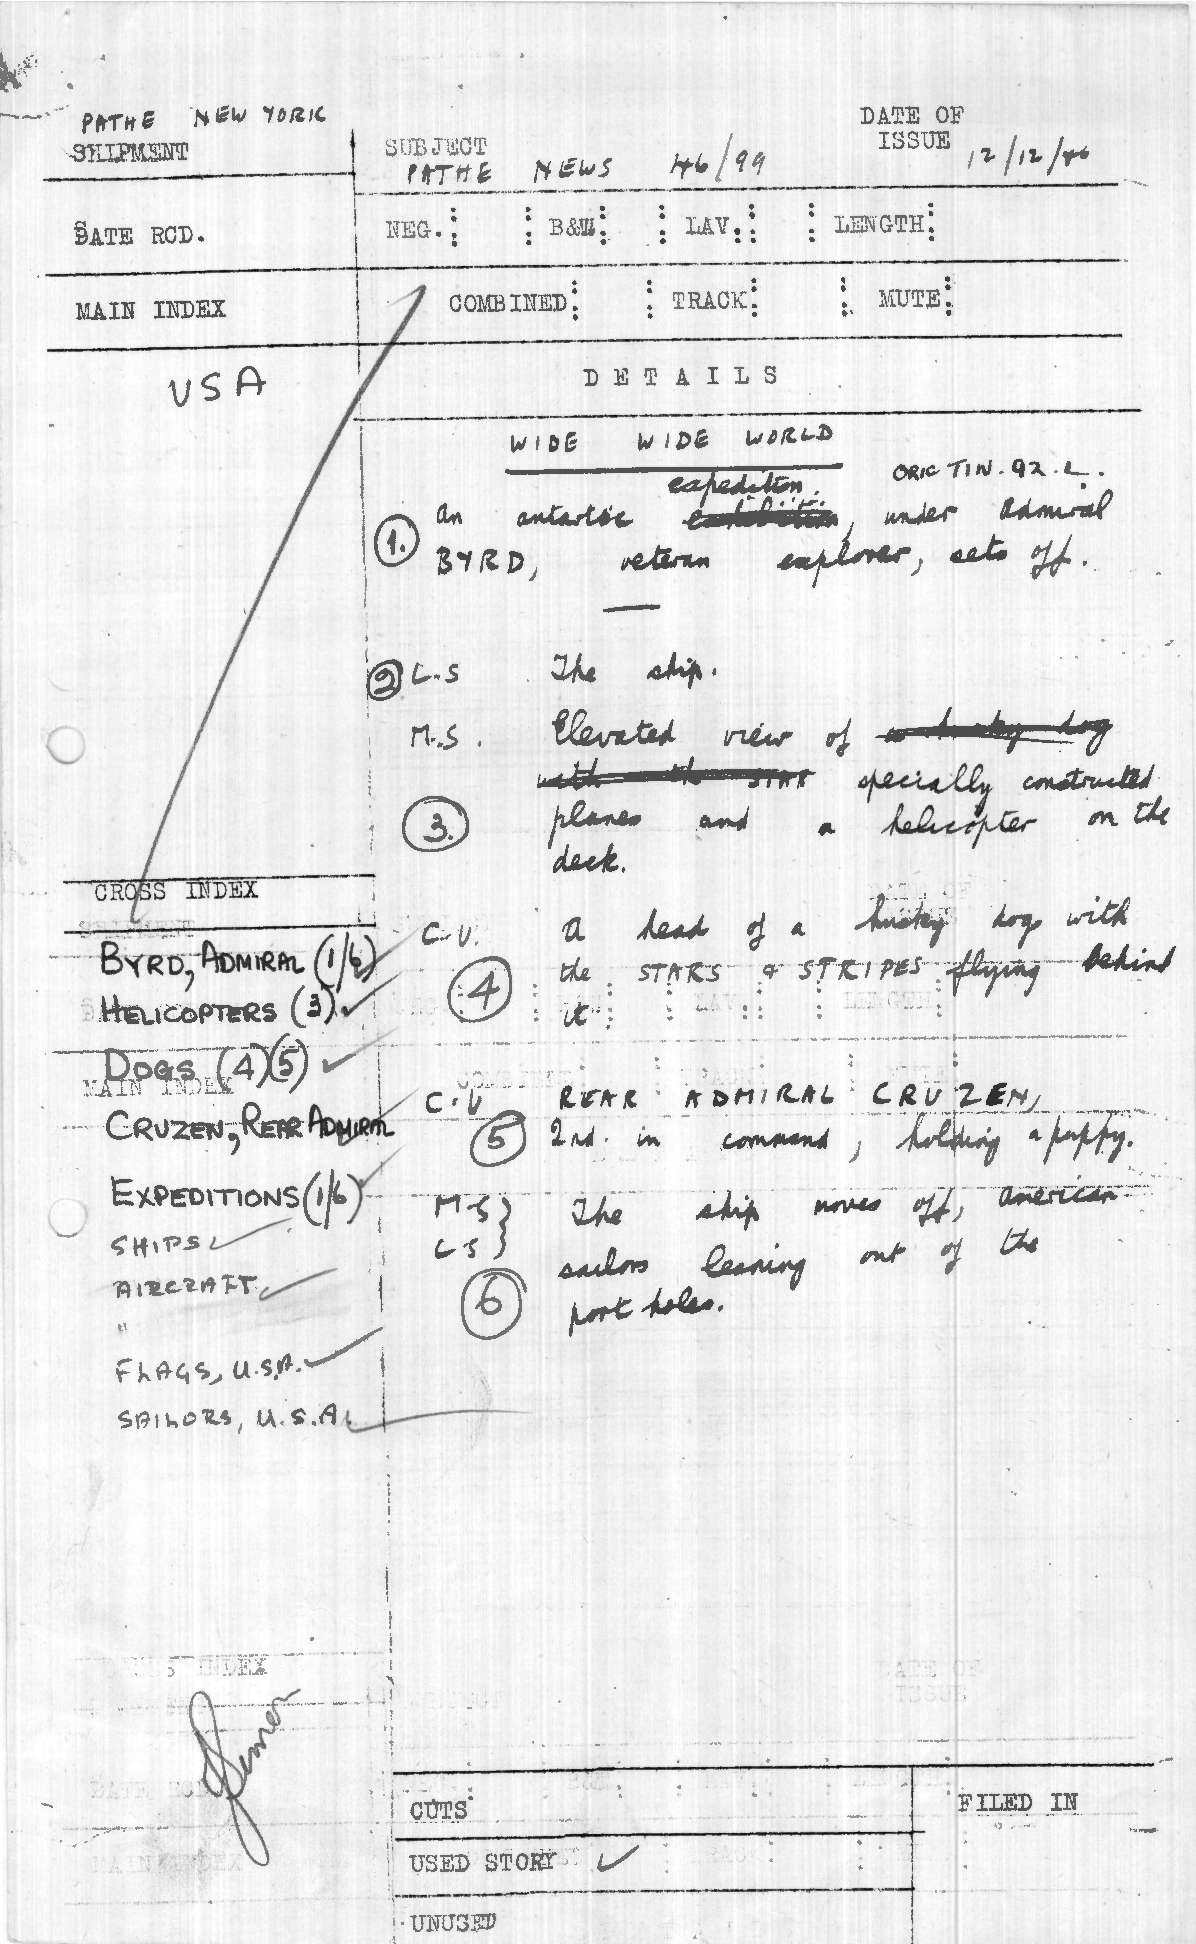 PATHE NEW YORK
SHIPMENT
SUBJECT
PATHE NEWS 46/99
DATE OF
ISSUE 12/12/46
DATE RCD.
NEG. B&W LAV. LENGTH
MAIN INDEX
COMBINED TRACK MUTE
USA
DETAILS
WIDE WIDE WORLD
ORIG TIN. 92. L.
expedition
1. An antartic exhibition, under Admiral
BYRD, veteran explorer, sets off.
2 L.S The ship.
M.S. Elevated view of a husky dog
with the STAR specially constructed
3. planes and a helicopter on the
deck.
C.U. A head of a husky dog with
4 the STARS & STRIPES flying behind
it
C.U REAR ADMIRAL CRUZEN,
5 2nd. in command, holding a puppy.
M.S The ship moves off, american
L.S sailors leaning out of the
6 port holes.
CROSS INDEX
BYRD, ADMIRAL (1/6)
HELICOPTERS (3)
DOGS (4)(5)
MAIN INDEX
CRUZEN, REAR ADMIRAL
EXPEDITIONS (1/6)
SHIPS
AIRCRAFT
"
FLAGS, U.S.A.
SAILORS, U.S.A.
INDEX
CUTS
FILED IN
USED STORY ✓
UNUSED